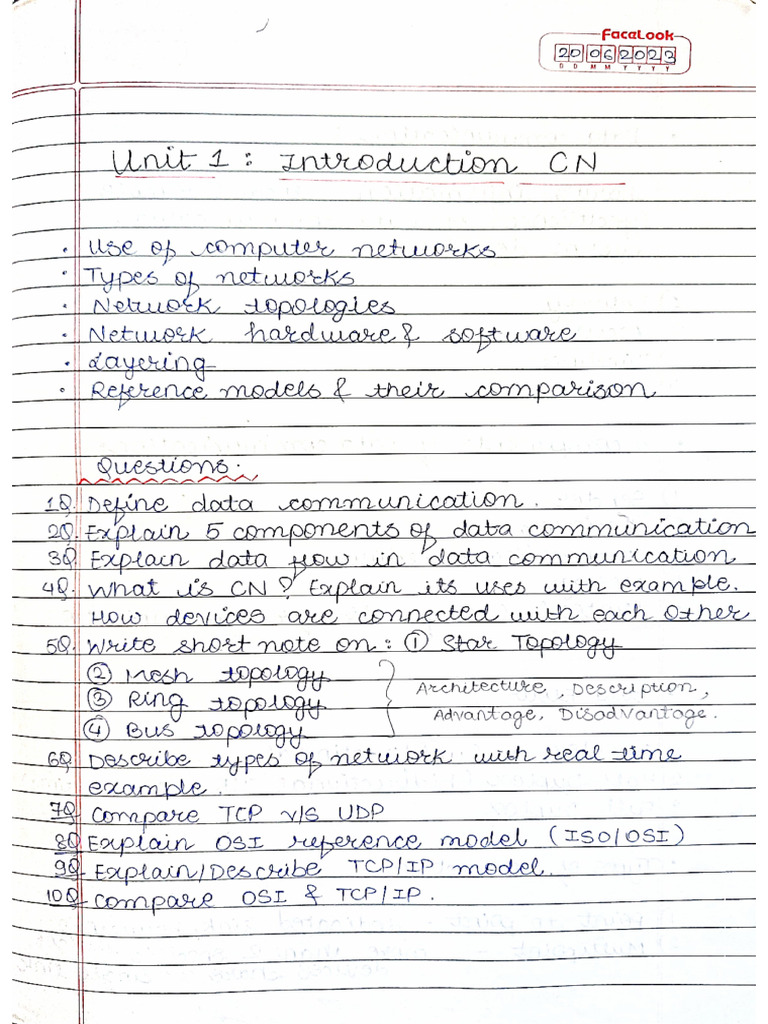 FaceLook
20 06 2023
D D M M Y Y Y Y
Unit 1 : Introduction CN
• Use of computer networks
• Types of networks
• Network topologies
• Network hardware & software
• Layering
• Reference models & their comparison
Questions.
1Q. Define data communication.
2Q. Explain 5 components of data communication
3Q. Explain data flow in data communication
4Q. What is CN? Explain its uses with example.
How devices are connected with each other
5Q. Write short note on : ① Star Topology
② Mesh topology
③ Ring topology
④ Bus topology
Architecture, Description,
Advantage, Disadvantage.
6Q Describe types of network with real time
example.
7Q Compare TCP v/s UDP
8Q Explain OSI reference model (ISO/OSI)
9Q Explain/Describe TCP/IP model.
10Q Compare OSI & TCP/IP.